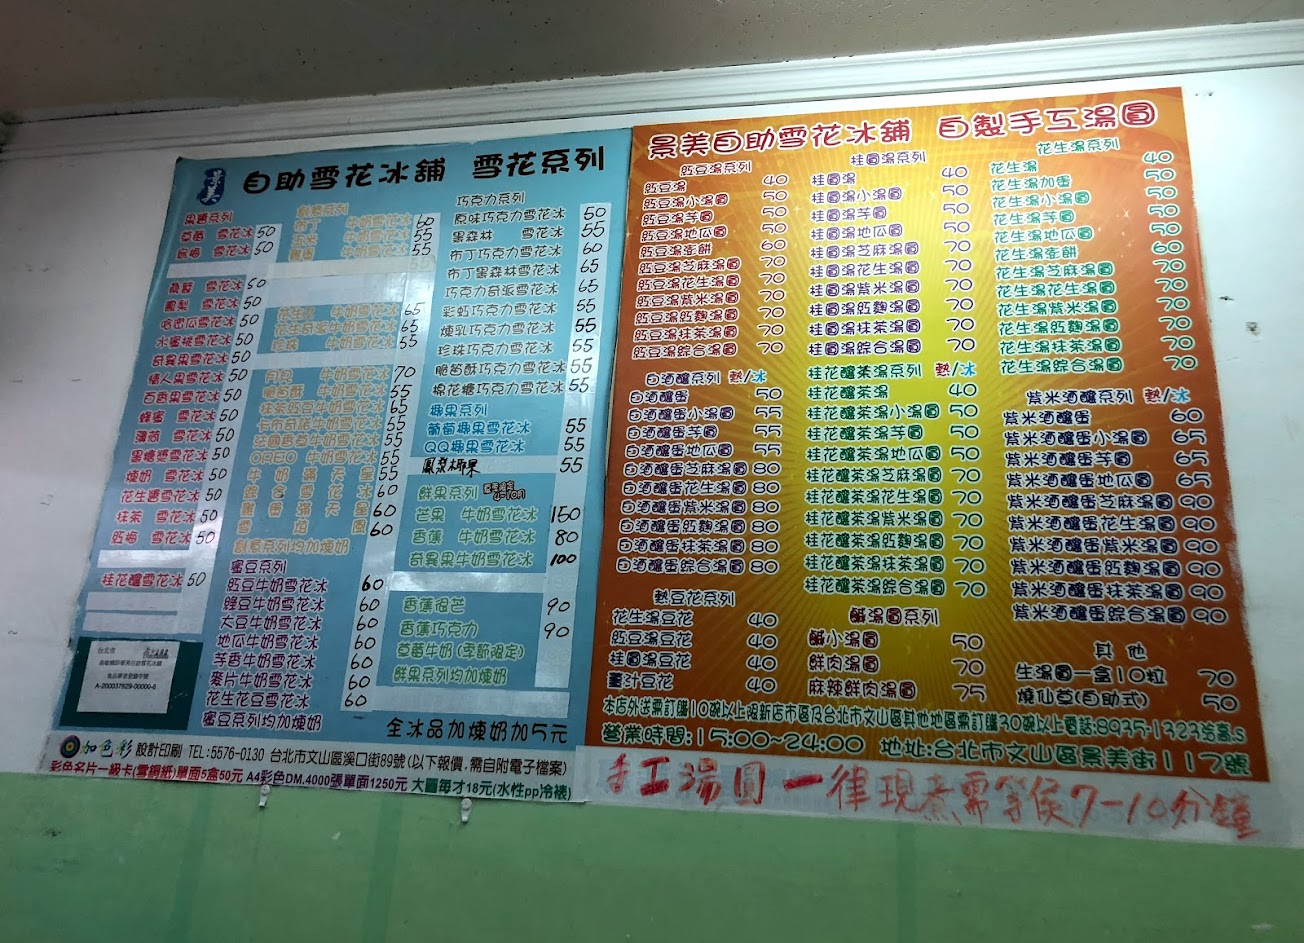 景美 自助雪花冰舖 雪花系列
果醬系列
草莓 雪花冰 50
烏梅 雪花冰 50
桑葚 雪花冰 50
鳳梨 雪花冰 50
哈密瓜雪花冰 50
水蜜桃雪花冰 50
奇異果雪花冰 50
情人果雪花冰 50
百香果雪花冰 50
蜂蜜 雪花冰 50
薄荷 雪花冰 50
黑糖漿雪花冰 50
煉奶 雪花冰 50
花生醬雪花冰 50
抹茶 雪花冰 50
紅梅 雪花冰 50
桂花釀雪花冰 50
創意系列
布丁 牛奶雪花冰 60
玉米 牛奶雪花冰 55
牛奶雪花冰 55
55
花生 牛奶雪花冰 65
花生奇派牛奶雪花冰 65
珍珠 牛奶雪花冰 55
牛奶雪花冰 70
脆笛酥 牛奶雪花冰 55
抹茶紅豆牛奶雪花冰 65
卡布奇諾牛奶雪花冰 55
法國香草牛奶雪花冰 55
OREO 牛奶雪花冰 55
牛奶滿天星 55
綜合雪花冰 60
雞蛋滿天星 60
雪 圓 60
創意系列均加煉奶
蜜豆系列
紅豆牛奶雪花冰 60
綠豆牛奶雪花冰 60
大豆牛奶雪花冰 60
地瓜牛奶雪花冰 60
芋香牛奶雪花冰 60
麥片牛奶雪花冰 60
花生花豆雪花冰 60
蜜豆系列均加煉奶
巧克力系列
原味巧克力雪花冰 50
黑森林 雪花冰 55
布丁巧克力雪花冰 60
布丁黑森林雪花冰 65
巧克力奇派雪花冰 65
彩虹巧克力雪花冰 55
煉乳巧克力雪花冰 55
珍珠巧克力雪花冰 55
脆笛酥巧克力雪花冰 55
棉花糖巧克力雪花冰 55
椰果系列
葡萄椰果雪花冰 55
QQ椰果雪花冰 55
鳳梨椰果 55
鮮果系列
芒果 牛奶雪花冰 150
香蕉 牛奶雪花冰 80
奇異果牛奶雪花冰 100
香蕉很芒 90
香蕉巧克力 90
草莓牛奶(季節限定)
鮮果系列均加煉奶
全冰品加煉奶加5元
台北市
食品業者登錄字號
A-200037629-00000-6
加色彩 設計印刷 TEL:5576-0130 台北市文山區溪口街89號(以下報價,需自附電子檔案)
彩色名片一級卡(雪銅紙)單面5盒50元 A4彩色DM.4000張單面1250元 大圖每才18元(水性pp冷裱)
景美自助雪花冰舖 自製手工湯圓
紅豆湯系列
紅豆湯 40
紅豆湯小湯圓 50
紅豆湯芋圓 50
紅豆湯地瓜圓 50
紅豆湯澎餅 60
紅豆湯芝麻湯圓 70
紅豆湯花生湯圓 70
紅豆湯紫米湯圓 70
紅豆湯紅麴湯圓 70
紅豆湯抹茶湯圓 70
紅豆湯綜合湯圓 70
白酒釀系列 熱/冰
白酒釀蛋 50
白酒釀蛋小湯圓 55
白酒釀蛋芋圓 55
白酒釀蛋地瓜圓 55
白酒釀蛋芝麻湯圓 80
白酒釀蛋花生湯圓 80
白酒釀蛋紫米湯圓 80
白酒釀蛋紅麴湯圓 80
白酒釀蛋抹茶湯圓 80
白酒釀蛋綜合湯圓 80
熱豆花系列
花生湯豆花 40
紅豆湯豆花 40
桂圓湯豆花 40
薑汁豆花 40
桂圓湯系列
桂圓湯 40
桂圓湯小湯圓 50
桂圓湯芋圓 50
桂圓湯地瓜圓 50
桂圓湯芝麻湯圓 70
桂圓湯花生湯圓 70
桂圓湯紫米湯圓 70
桂圓湯紅麴湯圓 70
桂圓湯抹茶湯圓 70
桂圓湯綜合湯圓 70
桂花釀茶湯系列 熱/冰
桂花釀茶湯 40
桂花釀茶湯小湯圓 50
桂花釀茶湯芋圓 50
桂花釀茶湯地瓜圓 50
桂花釀茶湯芝麻湯圓 70
桂花釀茶湯花生湯圓 70
桂花釀茶湯紫米湯圓 70
桂花釀茶湯紅麴湯圓 70
桂花釀茶湯抹茶湯圓 70
桂花釀茶湯綜合湯圓 70
鹹湯圓系列
鹹小湯圓 50
鮮肉湯圓 70
麻辣鮮肉湯圓 75
花生湯系列
花生湯 40
花生湯加蛋 50
花生湯小湯圓 50
花生湯芋圓 50
花生湯地瓜圓 50
花生湯澎餅 60
花生湯芝麻湯圓 70
花生湯花生湯圓 70
花生湯紫米湯圓 70
花生湯紅麴湯圓 70
花生湯抹茶湯圓 70
花生湯綜合湯圓 70
紫米酒釀系列 熱/冰
紫米酒釀蛋 60
紫米酒釀蛋小湯圓 65
紫米酒釀蛋芋圓 65
紫米酒釀蛋地瓜圓 65
紫米酒釀蛋芝麻湯圓 90
紫米酒釀蛋花生湯圓 90
紫米酒釀蛋紫米湯圓 90
紫米酒釀蛋紅麴湯圓 90
紫米酒釀蛋抹茶湯圓 90
紫米酒釀蛋綜合湯圓 90
其他
生湯圓一盒10粒 70
燒仙草(自助式) 50
本店外送需訂購10碗以上限新店市區及台北市文山區其他地區需訂購30碗以上電話:8935-1323洽高.s
營業時間:15:00~24:00 地址:台北市文山區景美街117號
手工湯圓一律現煮需等候7-10分鐘